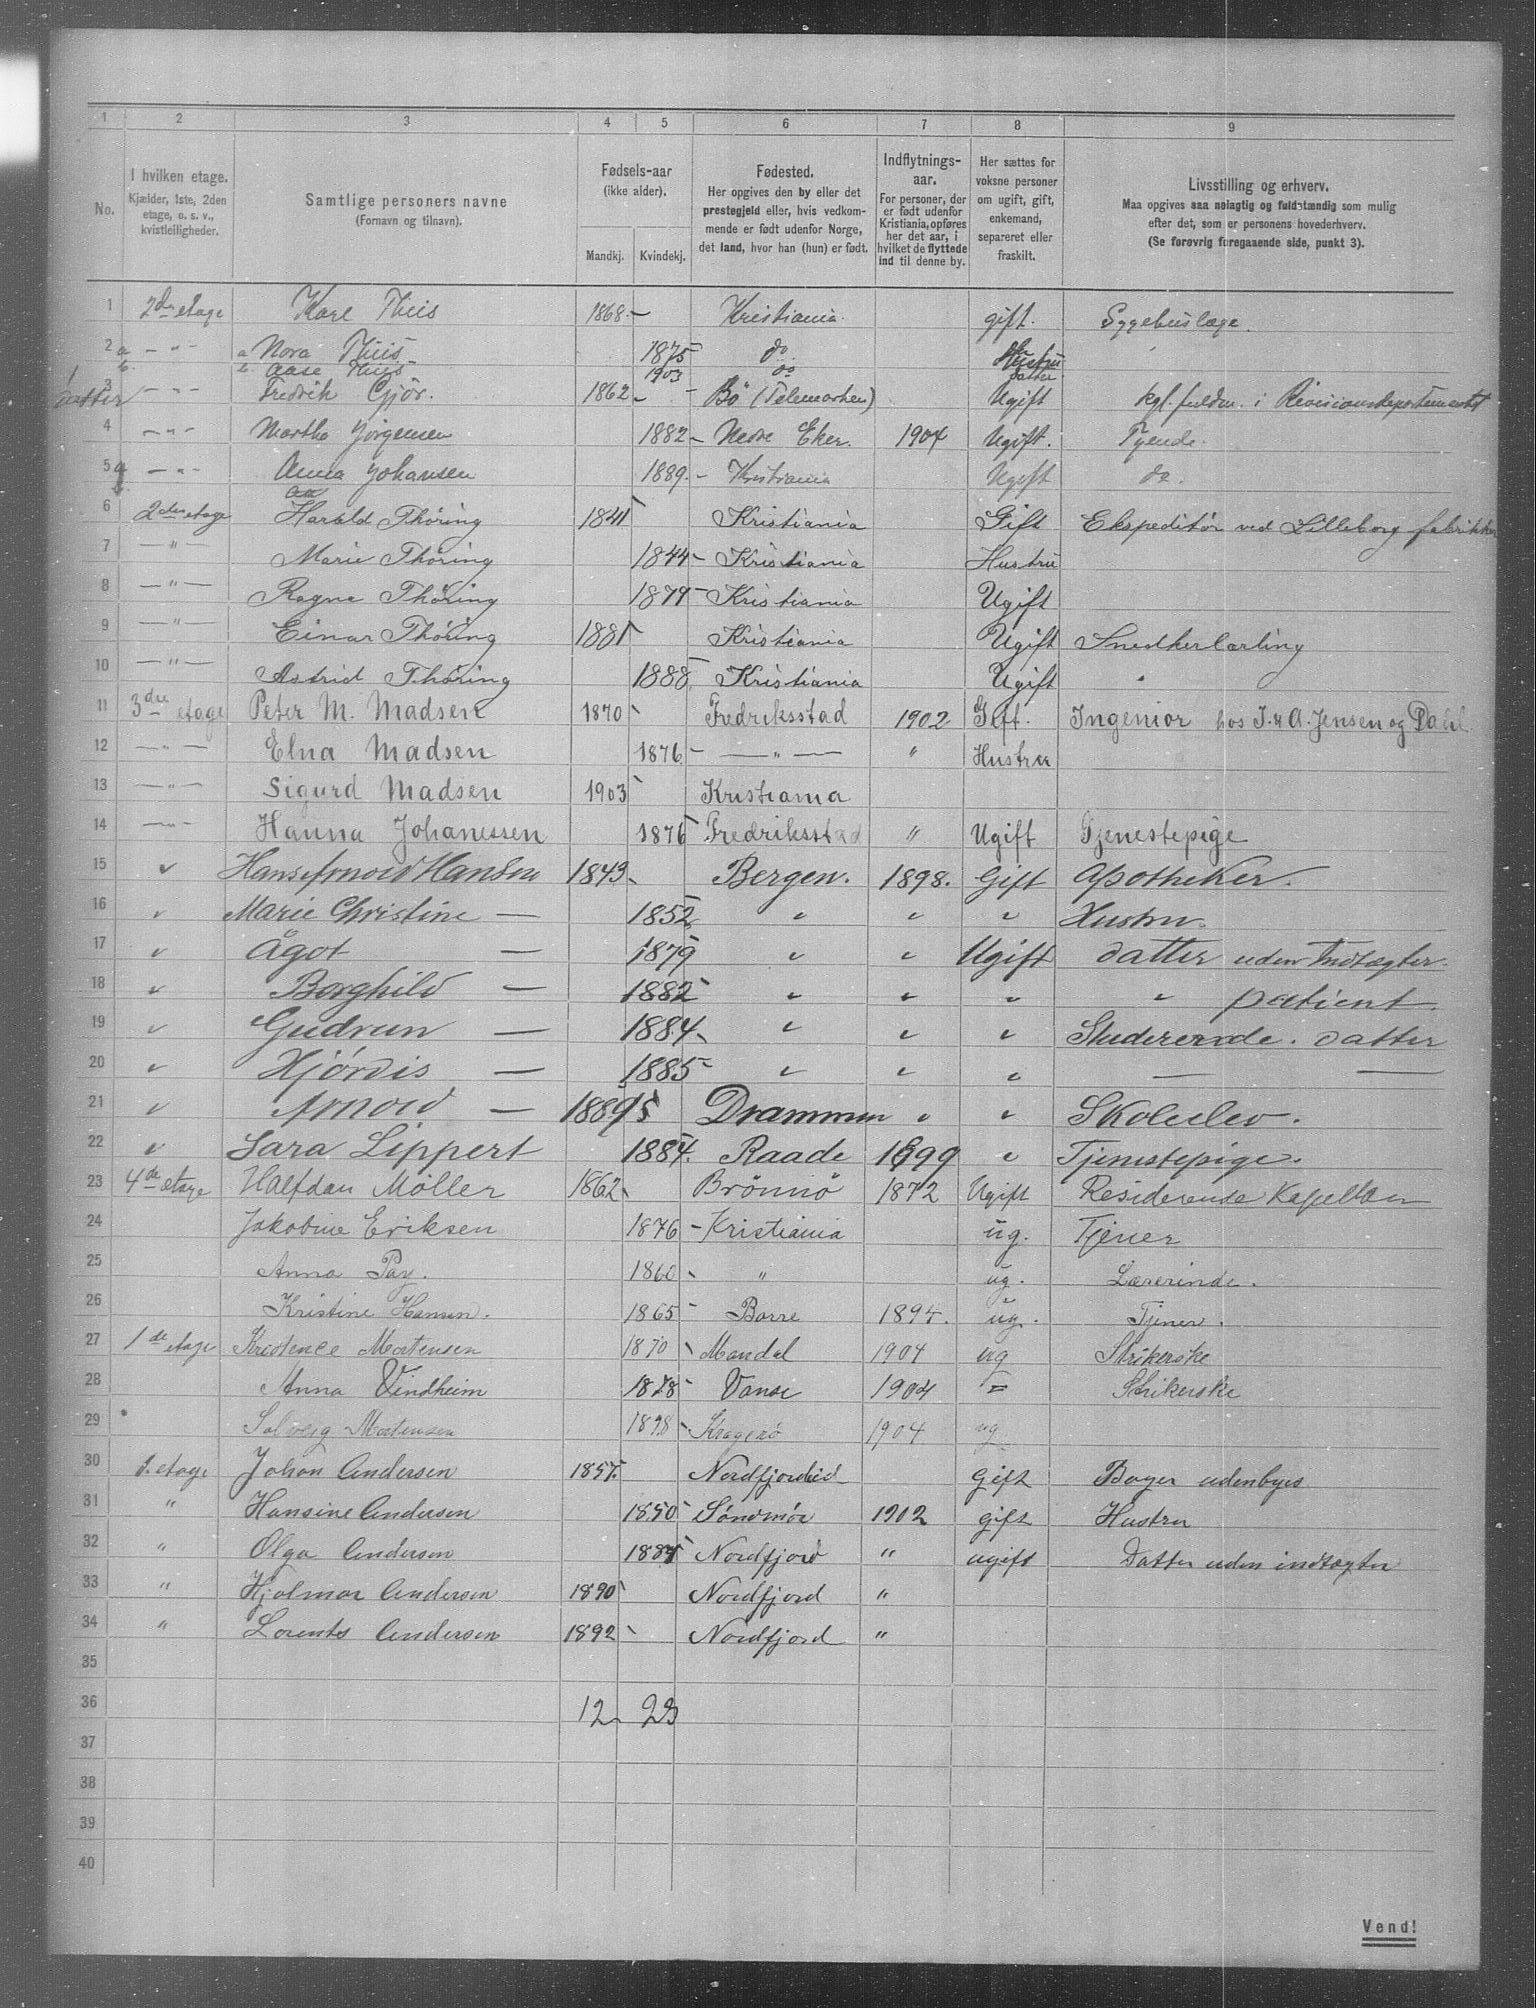 1 2 3 4 5 6 7 8 9
No.
I hvilken etage.
Kjælder, 1ste, 2den
etage, o. s. v.,
kvistleiligheder.
Samtlige personers navne
(Fornavn og tilnavn).
Fødsels-aar
(ikke alder).
Mandkj. Kvindekj.
Fødested.
Her opgives den by eller det
prestegjeld eller, hvis vedkom-
mende er født udenfor Norge,
det land, hvor han (hun) er født.
Indflytnings-
aar.
For personer, der
er født udenfor
Kristiania, opføres
her det aar, i
hvilket de flyttede
ind til denne by.
Her sættes for
voksne personer
om ugift, gift,
enkemand,
separeret eller
fraskilt.
Livsstilling og erhverv.
Maa opgives saa nøiagtig og fuldstændig som mulig
efter det, som er personens hovederhverv.
(Se forøvrig foregaaende side, punkt 3).
1 2den etage Karl Thiis 1868 - Kristiania. gift. Sygehuslæge.
2 a - " - a Nora Thiis 1875 do Hustru
b. b. Aase Thiis 1903 do datter
3 - " - Fredrik Gjör. 1862 - Bö (Telemarken) Ugift kgl. fuldm. i Revisionsdepartementet
1 datter
4 - " - Marthe Jörgensen 1882 - Nedre Eker. 1904 Ugift. Tyende.
5 - " - Anna Johansen 1889. - Kristiania Ugift do.
6 2den etage Harald Thöring 1841 Kristiania Gift Ekspeditör ved Lilleborg fabrikker
7 - " - Marie Thöring 1844 - Kristiania Hustru
8 - " - Ragna Thöring 1879 - Kristiania Ugift
9 - " - Einar Thöring 1881 Kristiania Ugift Snedkerlærling
10 - " - Astrid Thöring 1888 Kristiania Ugift "
11 3die etage Peter M. Madsen 1870 Fredriksstad 1902 Gift. Ingeniør hos J. & A. Jensen og Dahl
12 - " - Elna Madsen 1876 - " - " Hustru
13 - " - Sigurd Madsen 1903 Kristiania
14 - " - Hanna Johanessen 1876 Fredriksstad " Ugift Tjenestepige
15 " Hans Arnold Hansen 1843 Bergen. 1898. Gift Apotheker.
16 " Marie Christine - 1852 " " " Hustru.
17 " Ågot - 1879 " " Ugift datter uden Indtægter.
18 " Borghild - 1882 " " " " patient.
19 " Gudrun - 1884 " " " Studerende. datter
20 " Hjördis - 1885 " " " - -
21 " Arnold - 18895 Drammen " " Skoleelev.
22 " Sara Lippert 1884. Raade 1899 " Tjenestepige.
23 4de etage Halfdan Möller 1862 Brönnö 1872 Ugift Residerende Kapellan
24 Jakobine Eriksen 1876 - Kristiania ug. Tjener
25 Anna Pay. 1860 " ug. Lærerinde.
26 Kristine Hansen. 1865 - Borre 1894. ug. Tjener.
27 1de etage Kredence Mortensen 1870 Mandal 1904 ug Strikerske
28 Anna Vindheim 1878 Vanse 1904 = Strikerske
29 Solveig Mortensen 1898 - Kragerö 1904 ug
30 1. etage Johan Andersen 1857. Nordfjordeid Gift Bager udenbyes
31 " Hansine Andersen 1850 Söndmör 1902 gift Hustru
32 " Olga Andersen Nordfjord " ugift Datter uden indtægter
33 " Hjalmar Andersen 1890 Nordfjord "
34 " Lorents Andersen 1892 Nordfjord "
35
36 12 23
37
38
39
40
Vend!